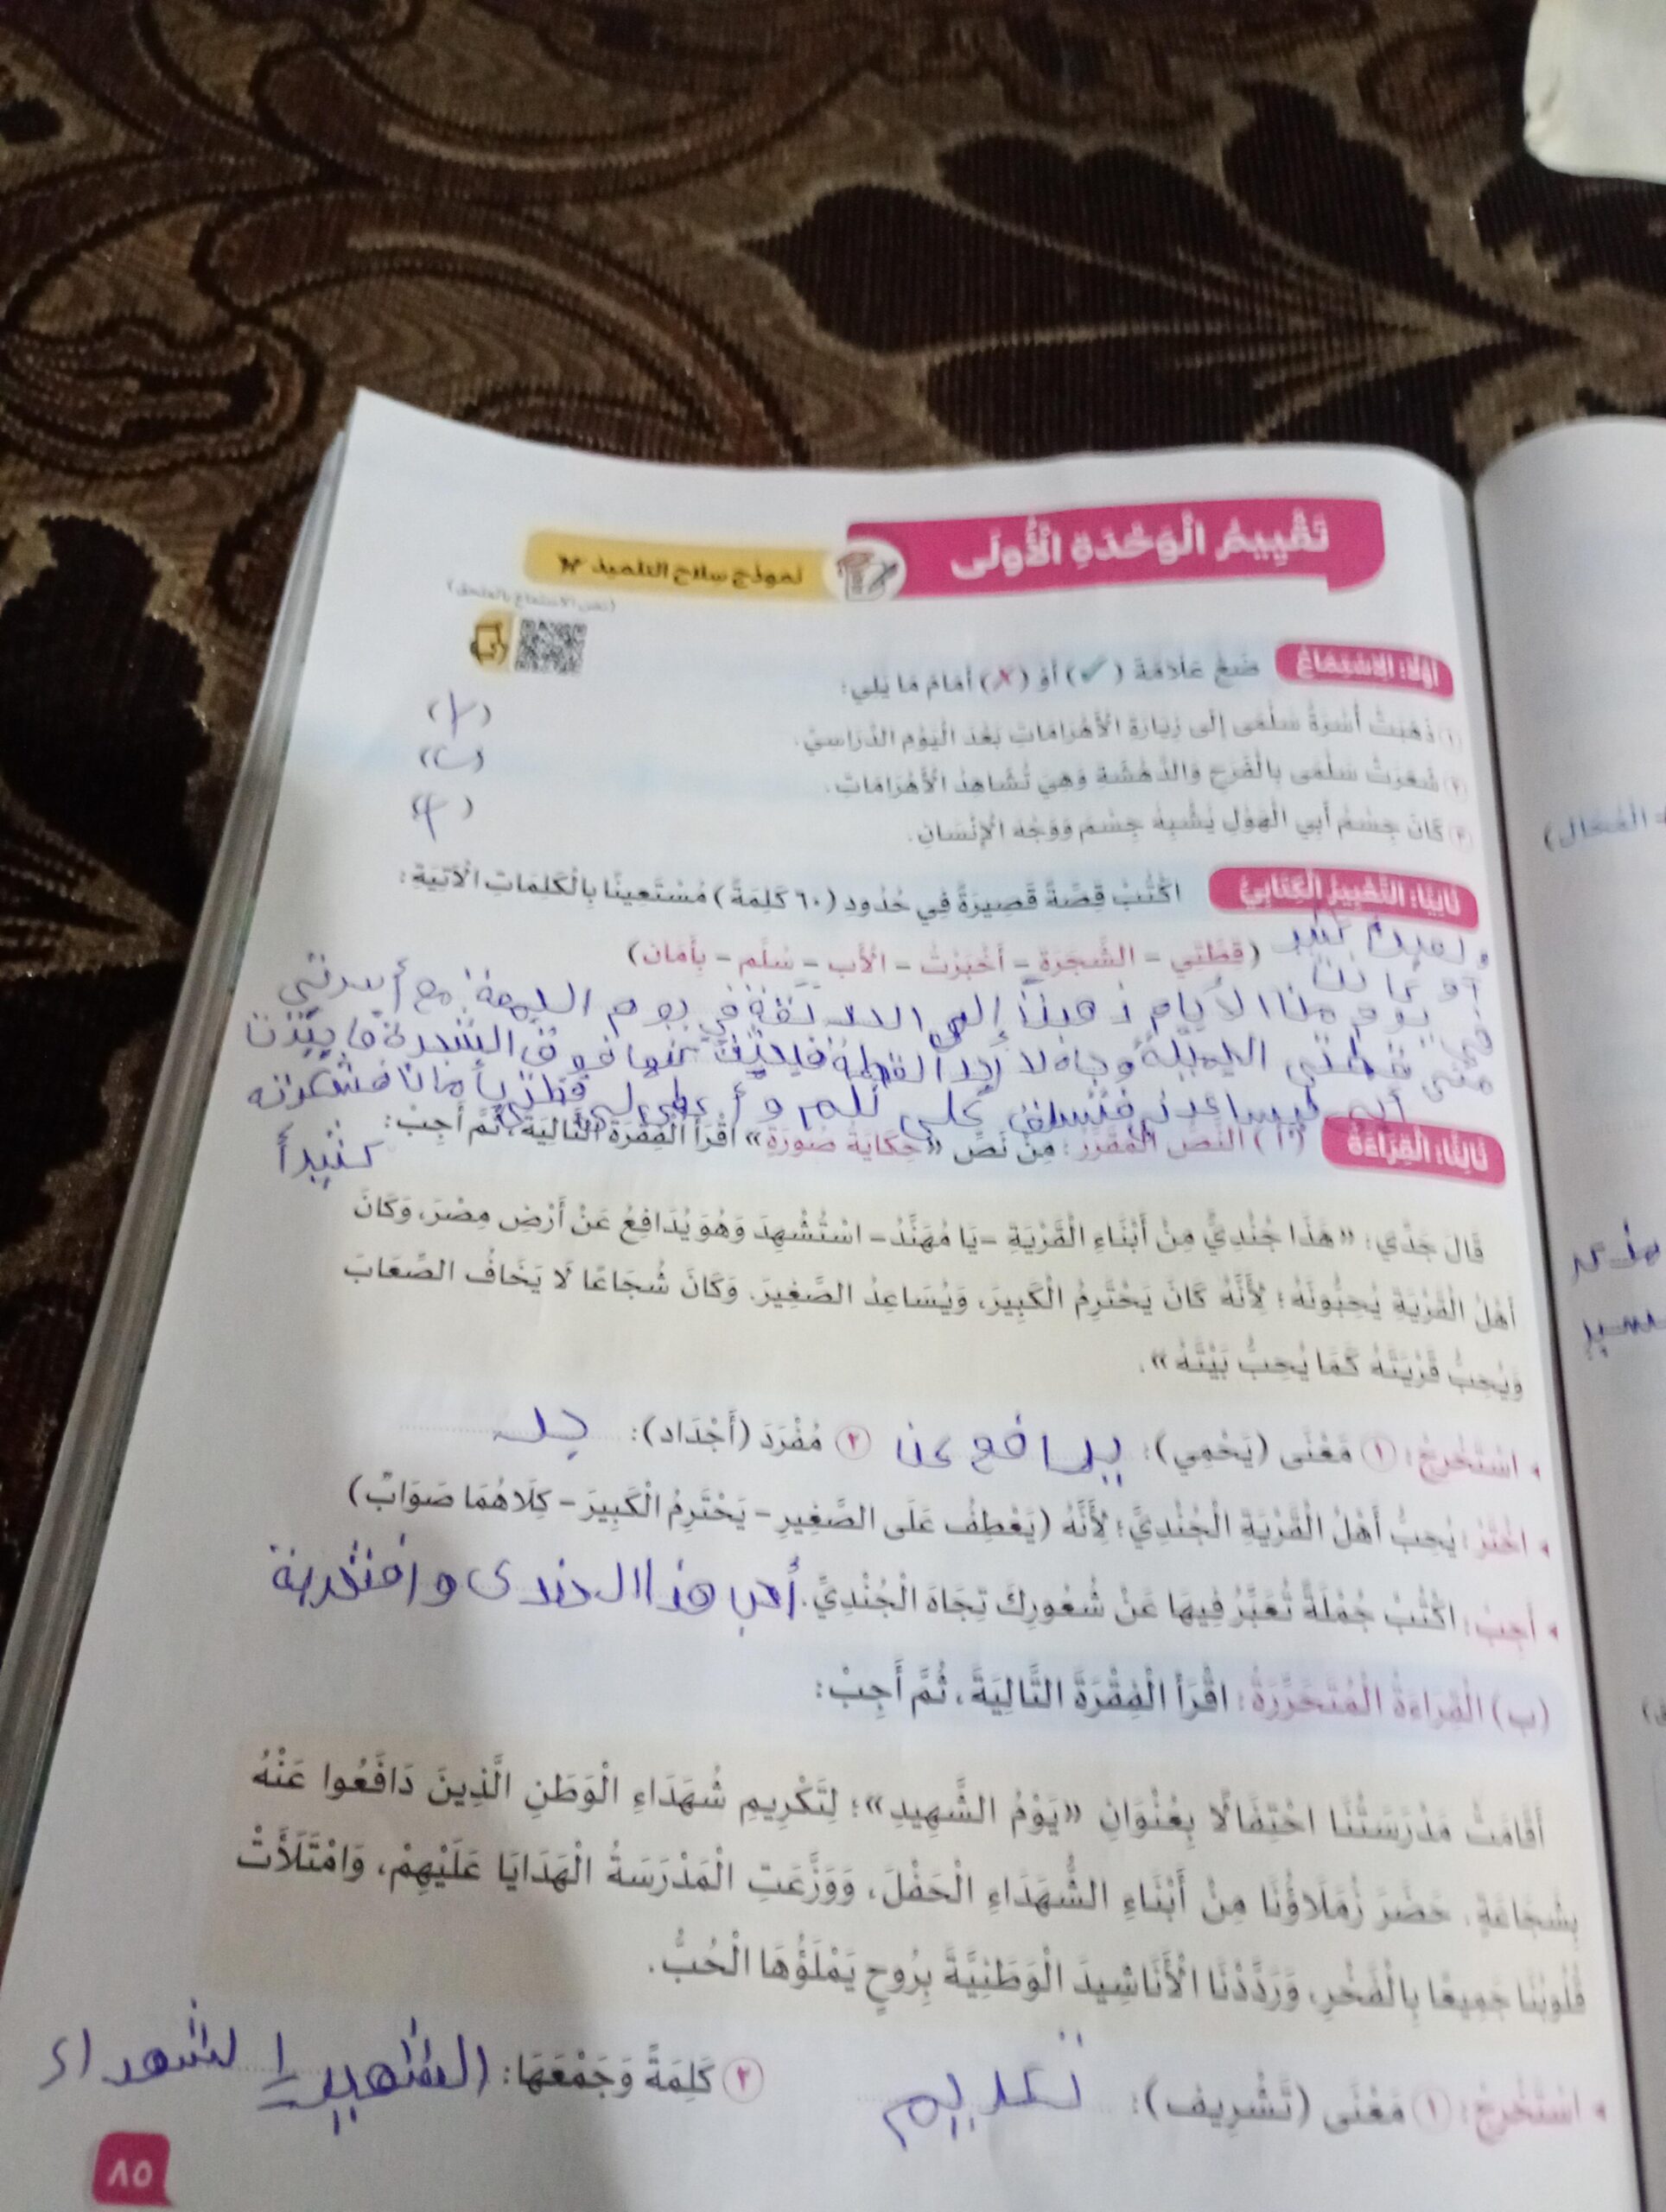 تَقْيِيمُ الْوَحْدَةِ الْأُولَى
نموذج سلاح التلميذ
(نص الاستماع بالملحق)
أَوَّلًا: الِاسْتِمَاعُ ضَعْ عَلَامَةَ (✓) أَوْ (✗) أَمَامَ مَا يَلِي:
١ ذَهَبَتْ أُسْرَةُ سَلْمَى إِلَى زِيَارَةِ الْأَهْرَامَاتِ بَعْدَ الْيَوْمِ الدِّرَاسِيِّ.
٢ شَعَرَتْ سَلْمَى بِالْفَرَحِ وَالدَّهْشَةِ وَهِيَ تُشَاهِدُ الْأَهْرَامَاتِ.
٣ كَانَ جِسْمُ أَبِي الْهَوْلِ يُشْبِهُ جِسْمَ وَوَجْهَ الْإِنْسَانِ.
ثَانِيًا: التَّعْبِيرُ الْكِتَابِيُّ اكْتُبْ قِصَّةً قَصِيرَةً فِي حُدُودِ (٦٠ كَلِمَةً) مُسْتَعِينًا بِالْكَلِمَاتِ الْآتِيَةِ:
(قِطَّتِي - الشَّجَرَةِ - أَخْبَرْتُ - الْأَب - سُلَّم - بِأَمَان)
يوم من الأيام ذهبنا إلى الحديقة في يوم الجمعة مع أسرتي
قطتي الجميلة وجاء فوق الشجرة
أبي ليساعدني على سلم و بأمان فشكرته
كثيراً
ثَالِثًا: الْقِرَاءَةُ (أ) النَّصُّ الْمُقَرَّرُ: مِنْ نَصِّ «حِكَايَةُ صُورَةٍ» اقْرَأِ الْفِقْرَةَ التَّالِيَةَ، ثُمَّ أَجِبْ:
قَالَ جَدِّي: «هَذَا جُنْدِيٌّ مِنْ أَبْنَاءِ الْقَرْيَةِ -يَا مُهَنَّدُ- اسْتُشْهِدَ وَهُوَ يُدَافِعُ عَنْ أَرْضِ مِصْرَ، وَكَانَ
أَهْلُ الْقَرْيَةِ يُحِبُّونَهُ؛ لِأَنَّهُ كَانَ يَحْتَرِمُ الْكَبِيرَ، وَيُسَاعِدُ الصَّغِيرَ، وَكَانَ شُجَاعًا لَا يَخَافُ الصِّعَابَ
وَيُحِبُّ قَرْيَتَهُ كَمَا يُحِبُّ بَيْتَهُ».
اسْتَخْرِجْ: ١ مَعْنَى (يَحْمِي): يدافع عن ٢ مُفْرَدَ (أَجْدَاد): جد
اخْتَرْ: يُحِبُّ أَهْلُ الْقَرْيَةِ الْجُنْدِيَّ؛ لِأَنَّهُ (يَعْطِفُ عَلَى الصَّغِيرِ - يَحْتَرِمُ الْكَبِيرَ - كِلَاهُمَا صَوَابٌ)
أَجِبْ: اكْتُبْ جُمْلَةً تُعَبِّرُ فِيهَا عَنْ شُعُورِكَ تِجَاهَ الْجُنْدِيِّ. أحب هذا الجندى و افتخر به
(ب) الْقِرَاءَةُ الْمُتَحَرِّرَةُ: اقْرَأِ الْفِقْرَةَ التَّالِيَةَ، ثُمَّ أَجِبْ:
أَقَامَتْ مَدْرَسَتُنَا احْتِفَالًا بِعُنْوَانِ «يَوْمُ الشَّهِيدِ»؛ لِتَكْرِيمِ شُهَدَاءِ الْوَطَنِ الَّذِينَ دَافَعُوا عَنْهُ
بِشَجَاعَةٍ. حَضَرَ زُمَلَاؤُنَا مِنْ أَبْنَاءِ الشُّهَدَاءِ الْحَفْلَ، وَوَزَّعَتِ الْمَدْرَسَةُ الْهَدَايَا عَلَيْهِمْ، وَامْتَلَأَتْ
قُلُوبُنَا جَمِيعًا بِالْفَخْرِ، وَرَدَّدْنَا الْأَنَاشِيدَ الْوَطَنِيَّةَ بِرُوحٍ يَمْلَؤُهَا الْحُبُّ.
اسْتَخْرِجْ: ١ مَعْنَى (تَشْرِيف): تكريم ٢ كَلِمَةً وَجَمْعَهَا: الشهيد لشهداء
٨٥